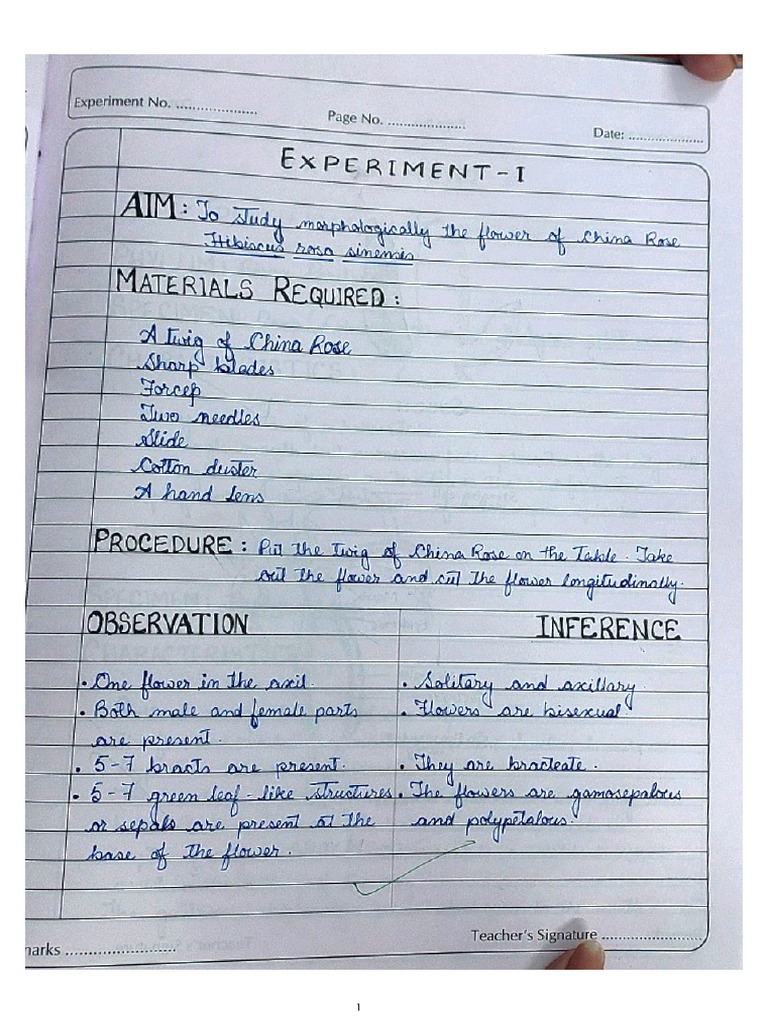 Experiment No. ....................
Page No. ....................
Date: ....................
EXPERIMENT-I
AIM: To study morphologically the flower of China Rose
Hibiscus rosa sinensis
MATERIALS REQUIRED:
A twig of China Rose
Sharp blades
Forcep
Two needles
Slide
Cotton duster
A hand lens
PROCEDURE: Put the twig of China Rose on the Table. Take
out the flower and cut the flower longitudinally.
OBSERVATION INFERENCE
• One flower in the axil. • Solitary and axillary.
• Both male and female parts • Flowers are bisexual
are present.
• 5-7 bracts are present. • They are bracteate.
• 5-7 green leaf-like structures • The flowers are gamosepalous
or sepals are present at the and polypetalous.
base of the flower.
Teacher's Signature ....................
marks ....................
1